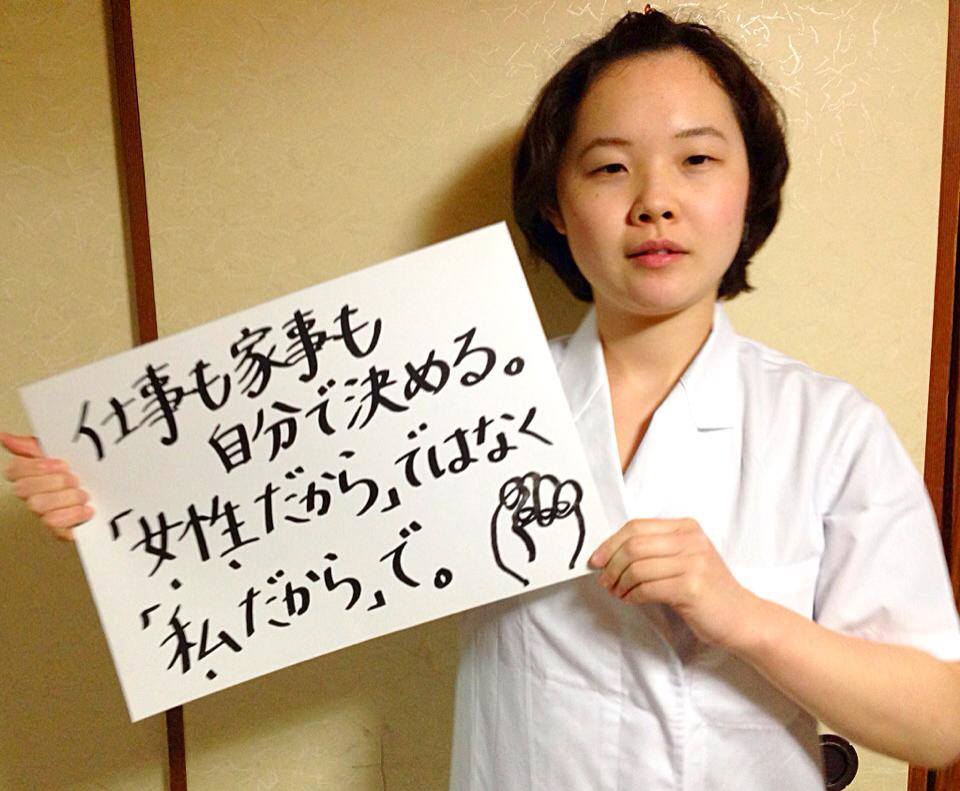 仕事も家事も
自分で決める。
「女性だから」ではなく
「私だから」で。